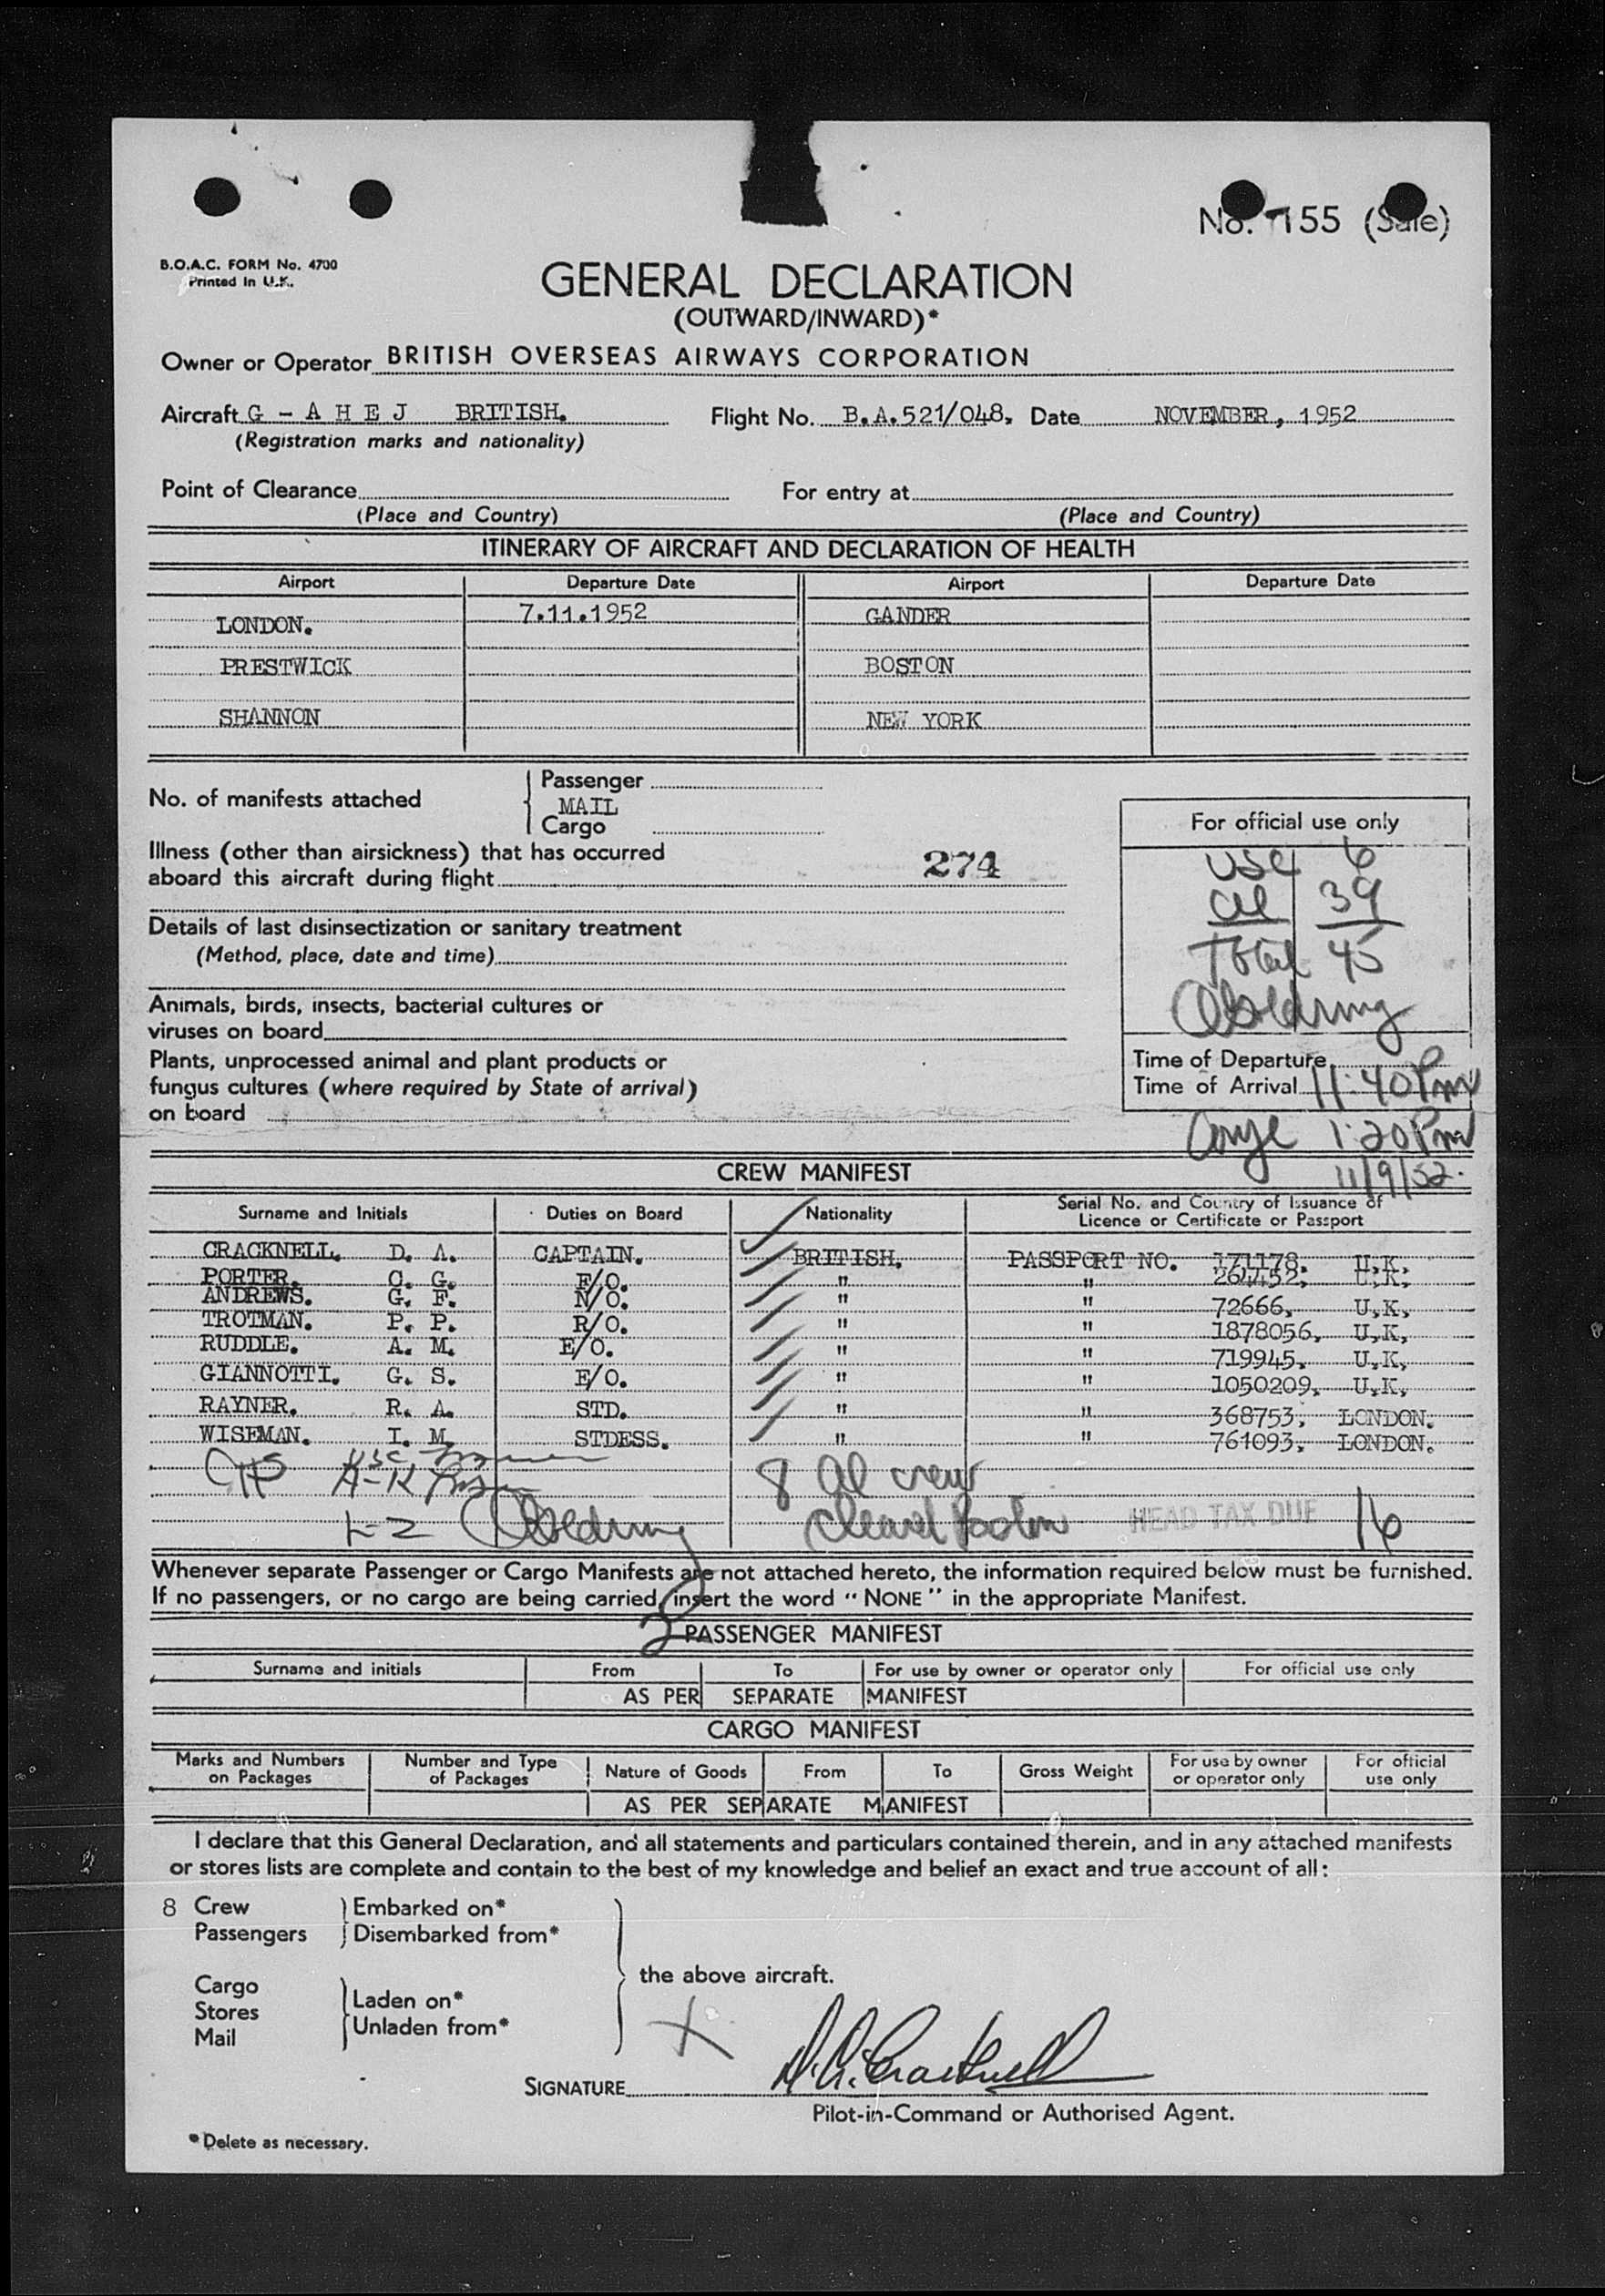 No. 155 (Sale)
B.O.A.C. FORM No. 4700
Printed in U.K.
GENERAL DECLARATION
(OUTWARD/INWARD)*
Owner or Operator BRITISH OVERSEAS AIRWAYS CORPORATION
Aircraft G - A H E J BRITISH. Flight No. B.A.521/048, Date NOVEMBER, 1952
(Registration marks and nationality)
Point of Clearance For entry at
(Place and Country) (Place and Country)
ITINERARY OF AIRCRAFT AND DECLARATION OF HEALTH
Airport Departure Date Airport Departure Date
LONDON. 7.11.1952 GANDER
PRESTWICK BOSTON
SHANNON NEW YORK
No. of manifests attached
Passenger
MAIL
Cargo
Illness (other than airsickness) that has occurred
aboard this aircraft during flight 274
Details of last disinsectization or sanitary treatment
(Method, place, date and time)
Animals, birds, insects, bacterial cultures or
viruses on board
Plants, unprocessed animal and plant products or
fungus cultures (where required by State of arrival)
on board
For official use only
USC 6
al 39
Total 45
Time of Departure
Time of Arrival 11:40 Pm
1:20 Pm
11/9/52.
CREW MANIFEST
Surname and Initials Duties on Board Nationality Serial No. and Country of Issuance of
Licence or Certificate or Passport
CRACKNELL. D. A. CAPTAIN. BRITISH. PASSPORT NO. 171178. U.K.
PORTER. C. G. F/O. " " 264452. U.K.
ANDREWS. G. F. N/O. " " 72666, U.K,
TROTMAN. P. P. R/O. " " 1878056, U.K,
RUDDLE. A. M. E/O. " " 719945. U.K,
GIANNOTTI. G. S. E/O. " " 1050209, U.K,
RAYNER. R. A. STD. " " 368753, LONDON.
WISEMAN. I. M. STDESS. " " 761093, LONDON.
8 al crew
1-2
HEAD TAX DUE 16
Whenever separate Passenger or Cargo Manifests are not attached hereto, the information required below must be furnished.
If no passengers, or no cargo are being carried, insert the word "NONE" in the appropriate Manifest.
PASSENGER MANIFEST
Surname and initials From To For use by owner or operator only For official use only
AS PER SEPARATE MANIFEST
CARGO MANIFEST
Marks and Numbers on Packages Number and Type of Packages Nature of Goods From To Gross Weight For use by owner or operator only For official use only
AS PER SEPARATE MANIFEST
I declare that this General Declaration, and all statements and particulars contained therein, and in any attached manifests
or stores lists are complete and contain to the best of my knowledge and belief an exact and true account of all:
8 Crew Embarked on*
Passengers Disembarked from*
the above aircraft.
Cargo
Stores Laden on*
Mail Unladen from*
X
SIGNATURE D. A. Cracknell
Pilot-in-Command or Authorised Agent.
*Delete as necessary.